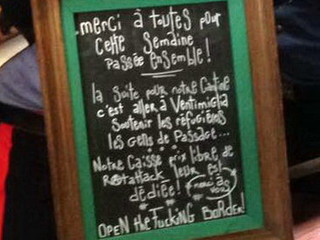 merci à toutes pour
cette semaine
passée ensemble !
la suite pour notre Cantine
c'est aller à Ventimiglia
soutenir les réfugiées
les gens de Passage...
Notre Caisse prix libre de
Ratattack leur est
dédiée !
merci à vous
OPEN the fucking BORDER!